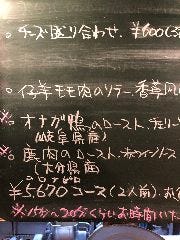 。チーズ盛り合わせ、¥600(
。仔羊モモ肉のソテー 香草風
※。オナガ鴨のロースト、チェリー
(岐阜県産)
※。鹿肉のロースト、赤ワインソース
(大分県産)
¥5670コース(2人前)、お
※バターつ20分くらいお時間いた